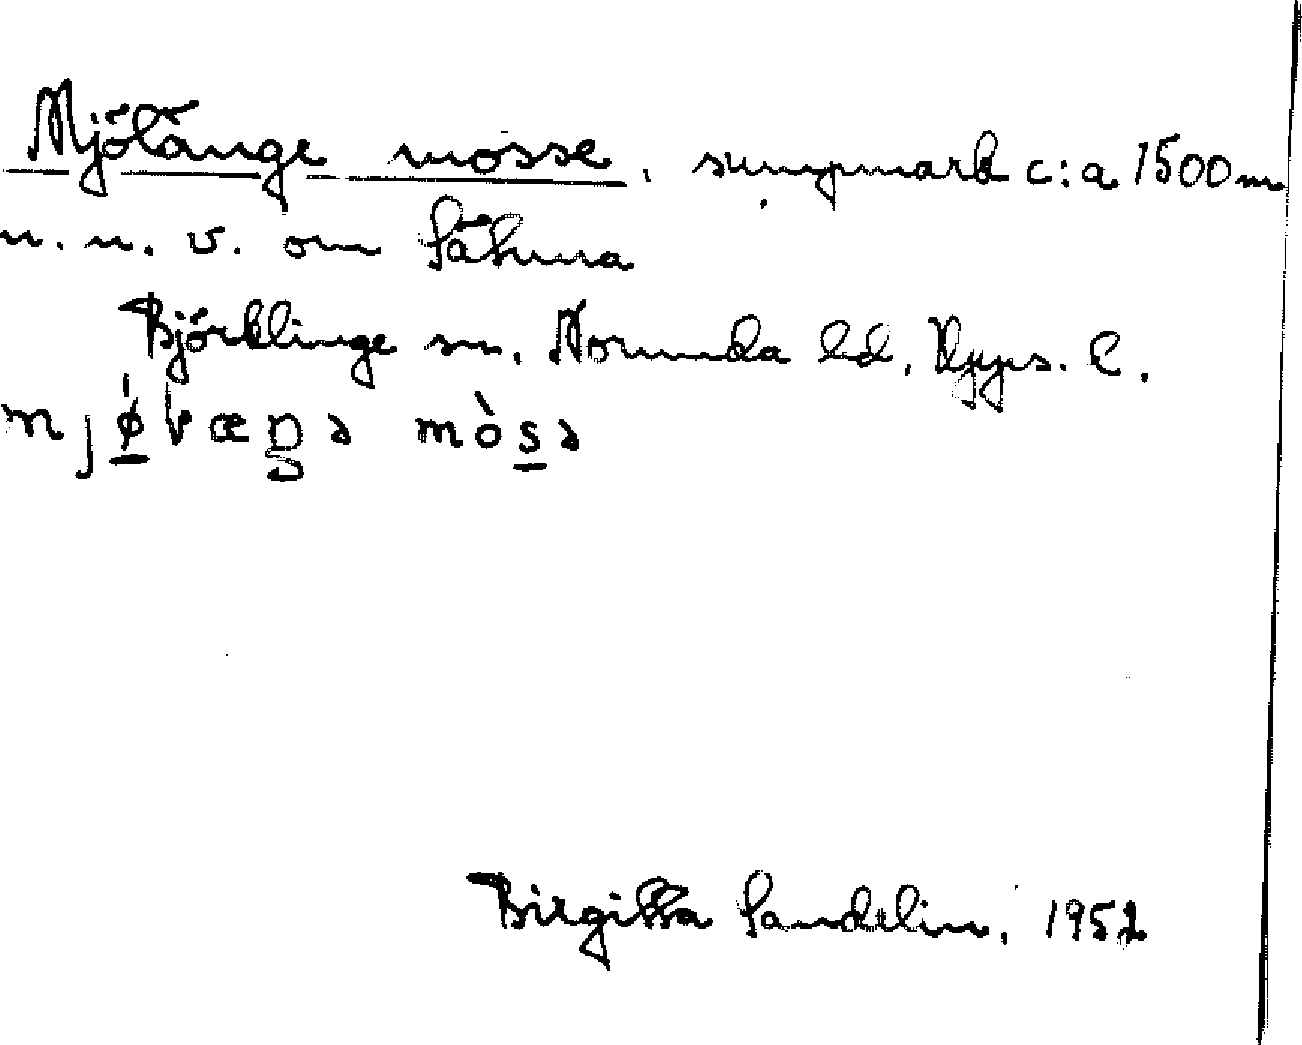 Mjölänge mosse, sumpmark c:a 1500 m
n. n. v. om Såhuna
Björklinge sn. Norunda hd, Upps. l.
mjǿ̱ɭæŋə mòs̱ə
Birgitta Sandelin, 1952